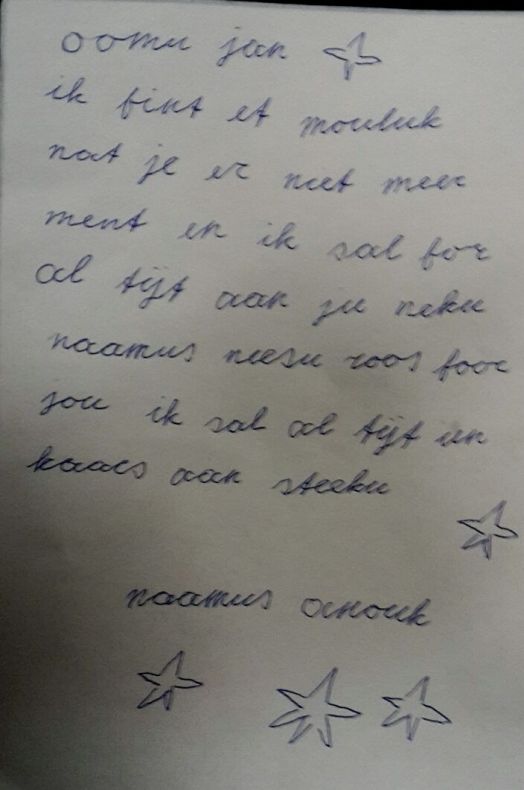 oomu jan
ik fint et mouluk
nat je er niet meer
ment en ik sal for
al tijt aan ju neku
naamus neesu roos foor
jou ik sal al tijt un
kaars aan steeku
naamus anouk